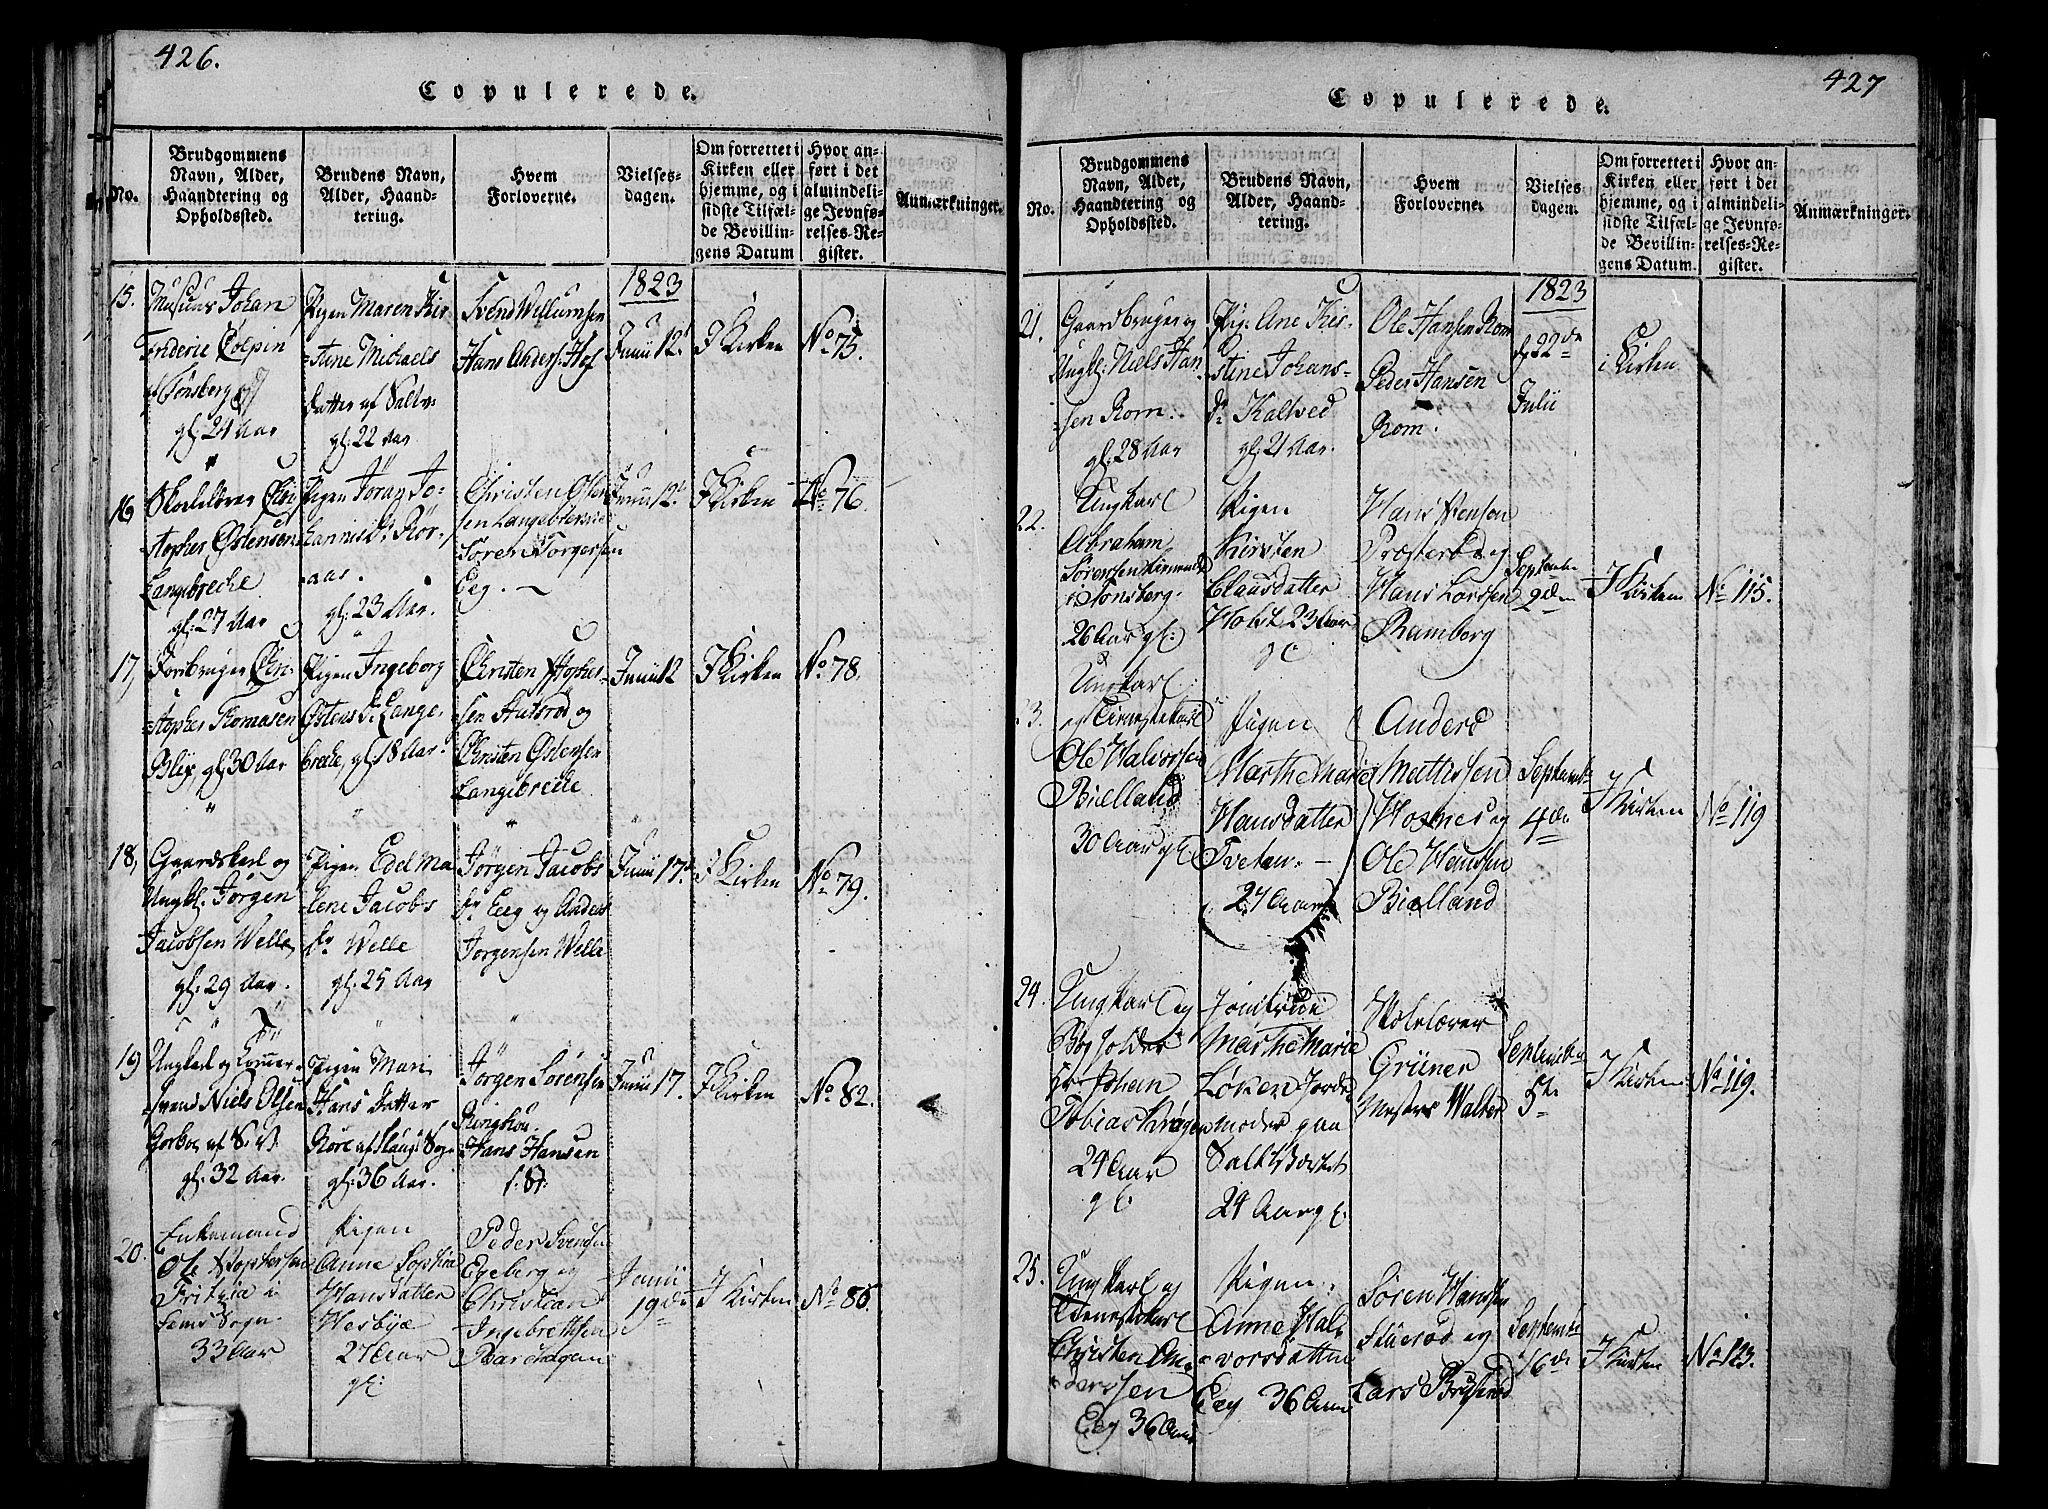 426.
Copulerede.
No.
Brudgommens
Navn, Alder,
Haandtering og
Opholdssted.
Brudens Navn,
Alder, Haand-
tering.
Hvem
Forloverne.
Vielses-
dagen.
Om forrettet i
Kirken eller
hjemme, og i
sidste Tilfæl-
de Bevillin-
gens Datum
Hvor an-
ført i det
almindeli-
ge Jevnfø-
relses-Re-
gister.
Anmærkninger.
1823
15.
Johan
Frideric Colpin
Tønsberg
gl: 24 Aar
Pigen Maren Kir-
stine Michaels
datter af
gl: 22 Aar
Svend Willumsen
Hans Anders: Hof
Junii 12.
I Kirken
No 75.
16,
Skolelærer Chri-
stopher Østensen
Langebreche
gl: 27 Aar
Pigen Jo-
hannis Dr Rør-
aas.
gl: 23 Aar.
Christen Østen-
sen Langebreche
Søren Torgersen
Eeg. -
Junii 12.
I Kirken
No 76.
17,
Jordbruger Chri-
stopher Thomasen
Blix, gl: 30 Aar
Pigen Ingeborg
Østens Dr Lange-
breche, gl: 18 Aar.
Christen Stopher-
sen og
Christen Østensen
Langebreche
Junii 12
I Kirken
No 78.
18,
Gaardskarl og
Ungkl. Jørgen
Jacobsen Welle
gl: 29 Aar.
Pigen Edel Ma-
lene Jacobs
Dr Welle
gl: 25 Aar
Jørgen Jacobs
Eeg og Anders
Jørgensen Welle
Junii 17.
I Kirken
No 79.
19
Ungkarl og Tømmer-
svend Niels Olsen
Gorboe af
gl: 32 Aar.
Pigen Mari
Hans Datter
Røre af Slaug: Sog
gl: 36 Aar.
Jørgen Sørensen
Ringshou.
Hans Hansen
Junii 17.
I Kirken
No 82.
20.
Enkemand
Ole Stophersen
i
Sems Sogn
33 Aar
Pigen
Anne Sophia
Hansdatter
Hesbye
27 Aar
gl:
Peder Svendsen
Egeberg og
Christian
Ingebrethsen
Junii
19de
I Kirken
No 86.
427
Copulerede.
No.
Brudgommens
Navn, Alder,
Haandtering og
Opholdssted.
Brudens Navn,
Alder, Haand-
tering.
Hvem
Forloverne.
Vielses
dagen.
Om forrettet i
Kirken eller
hjemme, og i
sidste Tilfæl-
de Bevillin-
gens Datum.
Hvor an-
ført i det
almindeli-
ge Jevnfø-
relses-Re-
gister.
Anmærkninger.
1823
21.
Gaardbruger og
Ungkl: Niels Han-
sen Rom.
gl: 28 Aar
Pig: Ane Kir-
stine Johans-
Dr Kaltved
gl: 21 Aar.
Ole Hansen Rom
Peder Hansen
Rom.
d 22de
Julii
i Kirken
22.
Ungkarl
Abraham
Sørensen
i Tønsberg.
26 Aar gl:
Pigen
Kirsten
Clausdatter
Holst 23 Aar
gl
Hans Stenson
Præsterød og
Hans Larssen
Ramborg
Septembr
2den
I Kirken
No 115.
23.
Ungkarl
og Tienestekarl
Ole Halvorssen
Bielland
30 Aar gl:
Pigen
Marthe Marie
Hansdatter
Tveten. -
27 Aar
Anders
Matthissen
Hosnes og
Ole Hanssen
Bielland
Septembr
4de
I Kirken
No 119
24.
Ungkarl og
Bogholder
Hr Johan
Tobias Krøger
24 Aar
gl:
Jomfrue
Marthe Marie
Løken Jorde-
moder paa
Saltværket
24 Aar gl:
Skolelærer
Grüner
Mester Walter
Septembr
5te
I Kirken
No 119.
25.
Ungkarl og
Tienestekarl
Christen An-
derssen
Eeg 36 Aar
Pigen
Anne Hal-
vorsdatter
Eeg 36 Aar
Søren Hanssen
og
Lars
Septembr
16de
I Kirken
No 123.